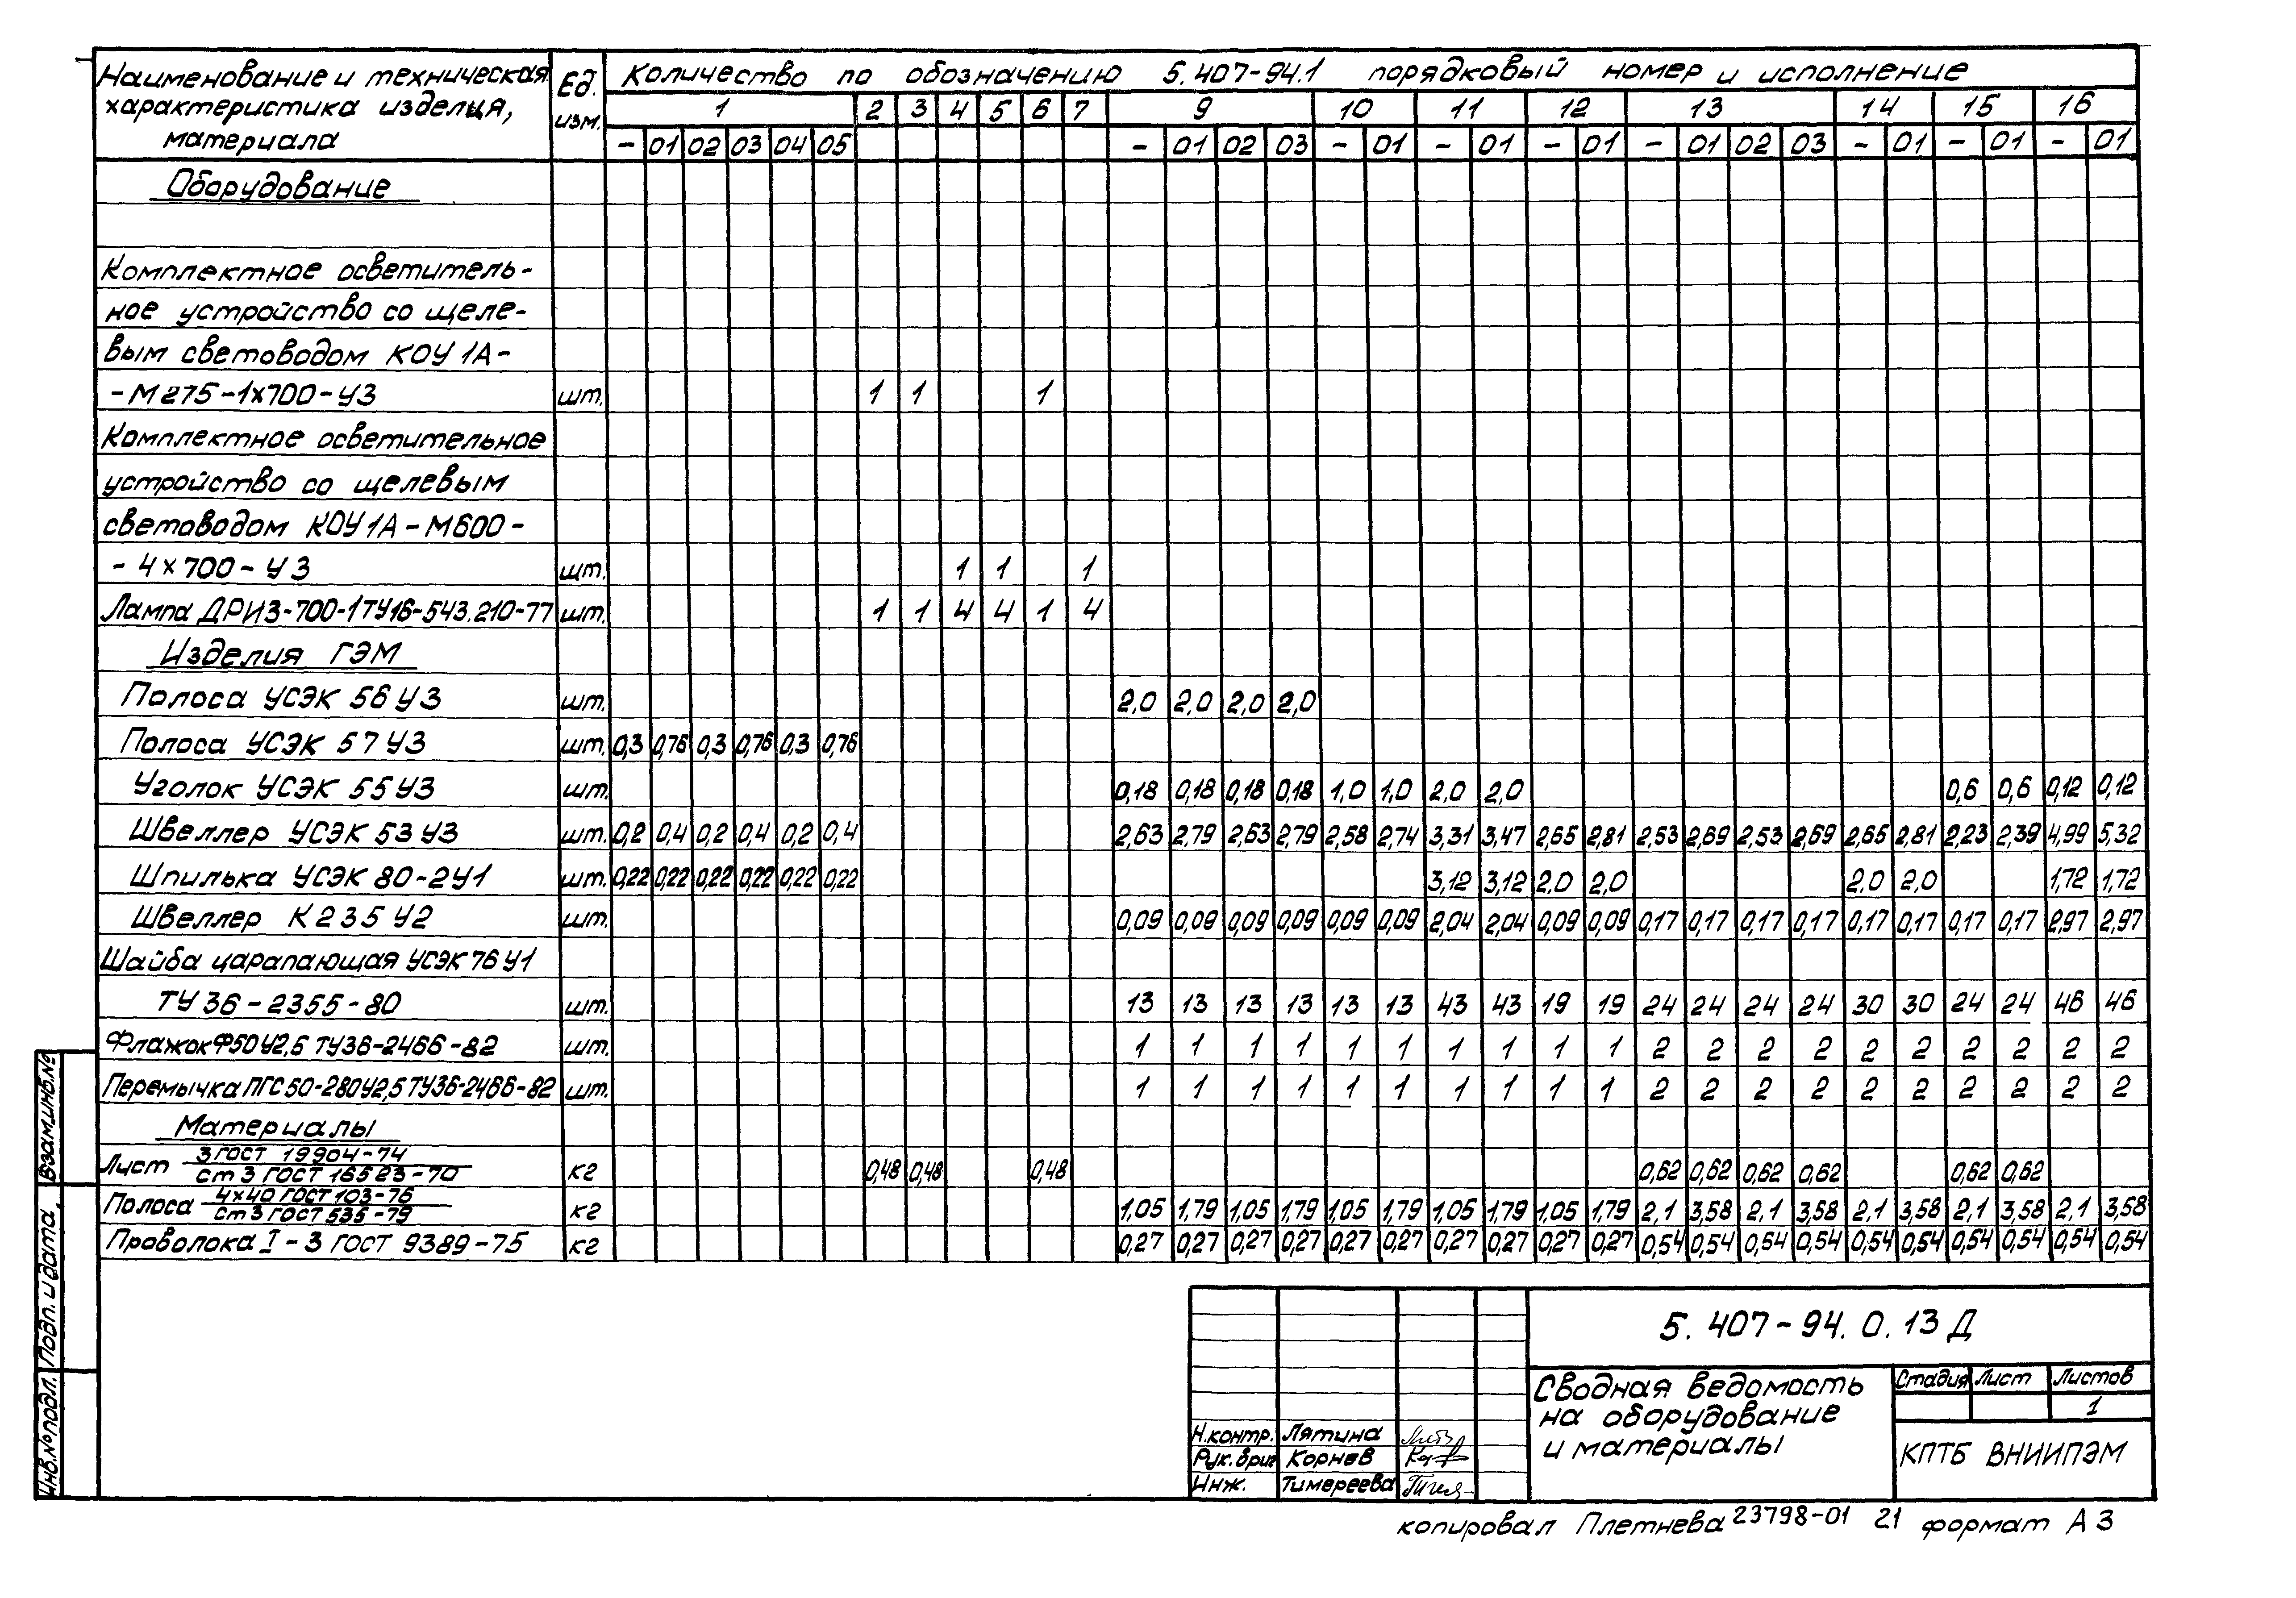 Наименование и техническая характеристика изделия, материала | Ед. изм. | Количество по обозначению 5.407-94.1 порядковый номер и исполнение
1 2 3 4 5 6 7 9 10 11 12 13 14 15 16
- 01 02 03 04 05 - 01 02 03 - 01 - 01 - 01 - 01 02 03 - 01 - 01 - 01
Оборудование
Комплектное осветитель-
ное устройство со щеле-
вым световодом КОУ 1А-
-М275-1х700-У3 шт. 1 1 1
Комплектное осветительное
устройство со щелевым
световодом КОУ1А-М600-
-4х700-У3 шт. 1 1 1
Лампа ДРИЗ-700-1ТУ16-543.210-77 шт. 1 1 4 4 1 4
Изделия ГЭМ
Полоса УСЭК 56 У3 шт. 2,0 2,0 2,0 2,0
Полоса УСЭК 57 У3 шт. 0,3 0,76 0,3 0,76 0,3 0,76
Уголок УСЭК 55 У3 шт. 0,18 0,18 0,18 0,18 1,0 1,0 2,0 2,0 0,6 0,6 0,12 0,12
Швеллер УСЭК 53 У3 шт. 0,2 0,4 0,2 0,4 0,2 0,4 2,63 2,79 2,63 2,79 2,58 2,74 3,31 3,47 2,65 2,81 2,53 2,69 2,53 2,69 2,65 2,81 2,23 2,39 4,99 5,32
Шпилька УСЭК 80-2У1 шт. 0,22 0,22 0,22 0,22 0,22 0,22 3,12 3,12 2,0 2,0 2,0 2,0 1,72 1,72
Швеллер К235У2 шт. 0,09 0,09 0,09 0,09 0,09 0,09 2,04 2,04 0,09 0,09 0,17 0,17 0,17 0,17 0,17 0,17 0,17 0,17 2,97 2,97
Шайба царапающая УСЭК 76 У1
ТУ 36-2355-80 шт. 13 13 13 13 13 13 43 43 19 19 24 24 24 24 30 30 24 24 46 46
Флажок Ф50У2,5 ТУ36-2466-82 шт. 1 1 1 1 1 1 1 1 1 1 2 2 2 2 2 2 2 2 2 2
Перемычка ПГС 50-280У2,5 ТУ36-2466-82 шт. 1 1 1 1 1 1 1 1 1 1 2 2 2 2 2 2 2 2 2 2
Материалы
Лист 3 ГОСТ 19904-74 / ст 3 ГОСТ 16523-70 кг 0,48 0,48 0,48 0,62 0,62 0,62 0,62 0,62 0,62
Полоса 4х40 ГОСТ 103-76 / ст 3 ГОСТ 535-79 кг 1,05 1,79 1,05 1,79 1,05 1,79 1,05 1,79 1,05 1,79 2,1 3,58 2,1 3,58 2,1 3,58 2,1 3,58 2,1 3,58
Проволока I-3 ГОСТ 9389-75 кг 0,27 0,27 0,27 0,27 0,27 0,27 0,27 0,27 0,27 0,27 0,54 0,54 0,54 0,54 0,54 0,54 0,54 0,54 0,54 0,54
Взам.инв.№
Подп. и дата
Инв.№подл.
5.407-94.0.13 Д
Сводная ведомость
на оборудование
и материалы
Стадия Лист Листов
1
КПТБ ВНИИПЭМ
Н.контр. Лятина
Рук.бриг Корнев
Инж. Тимереева
копировал Плетнева 23798-01 21 формат А3